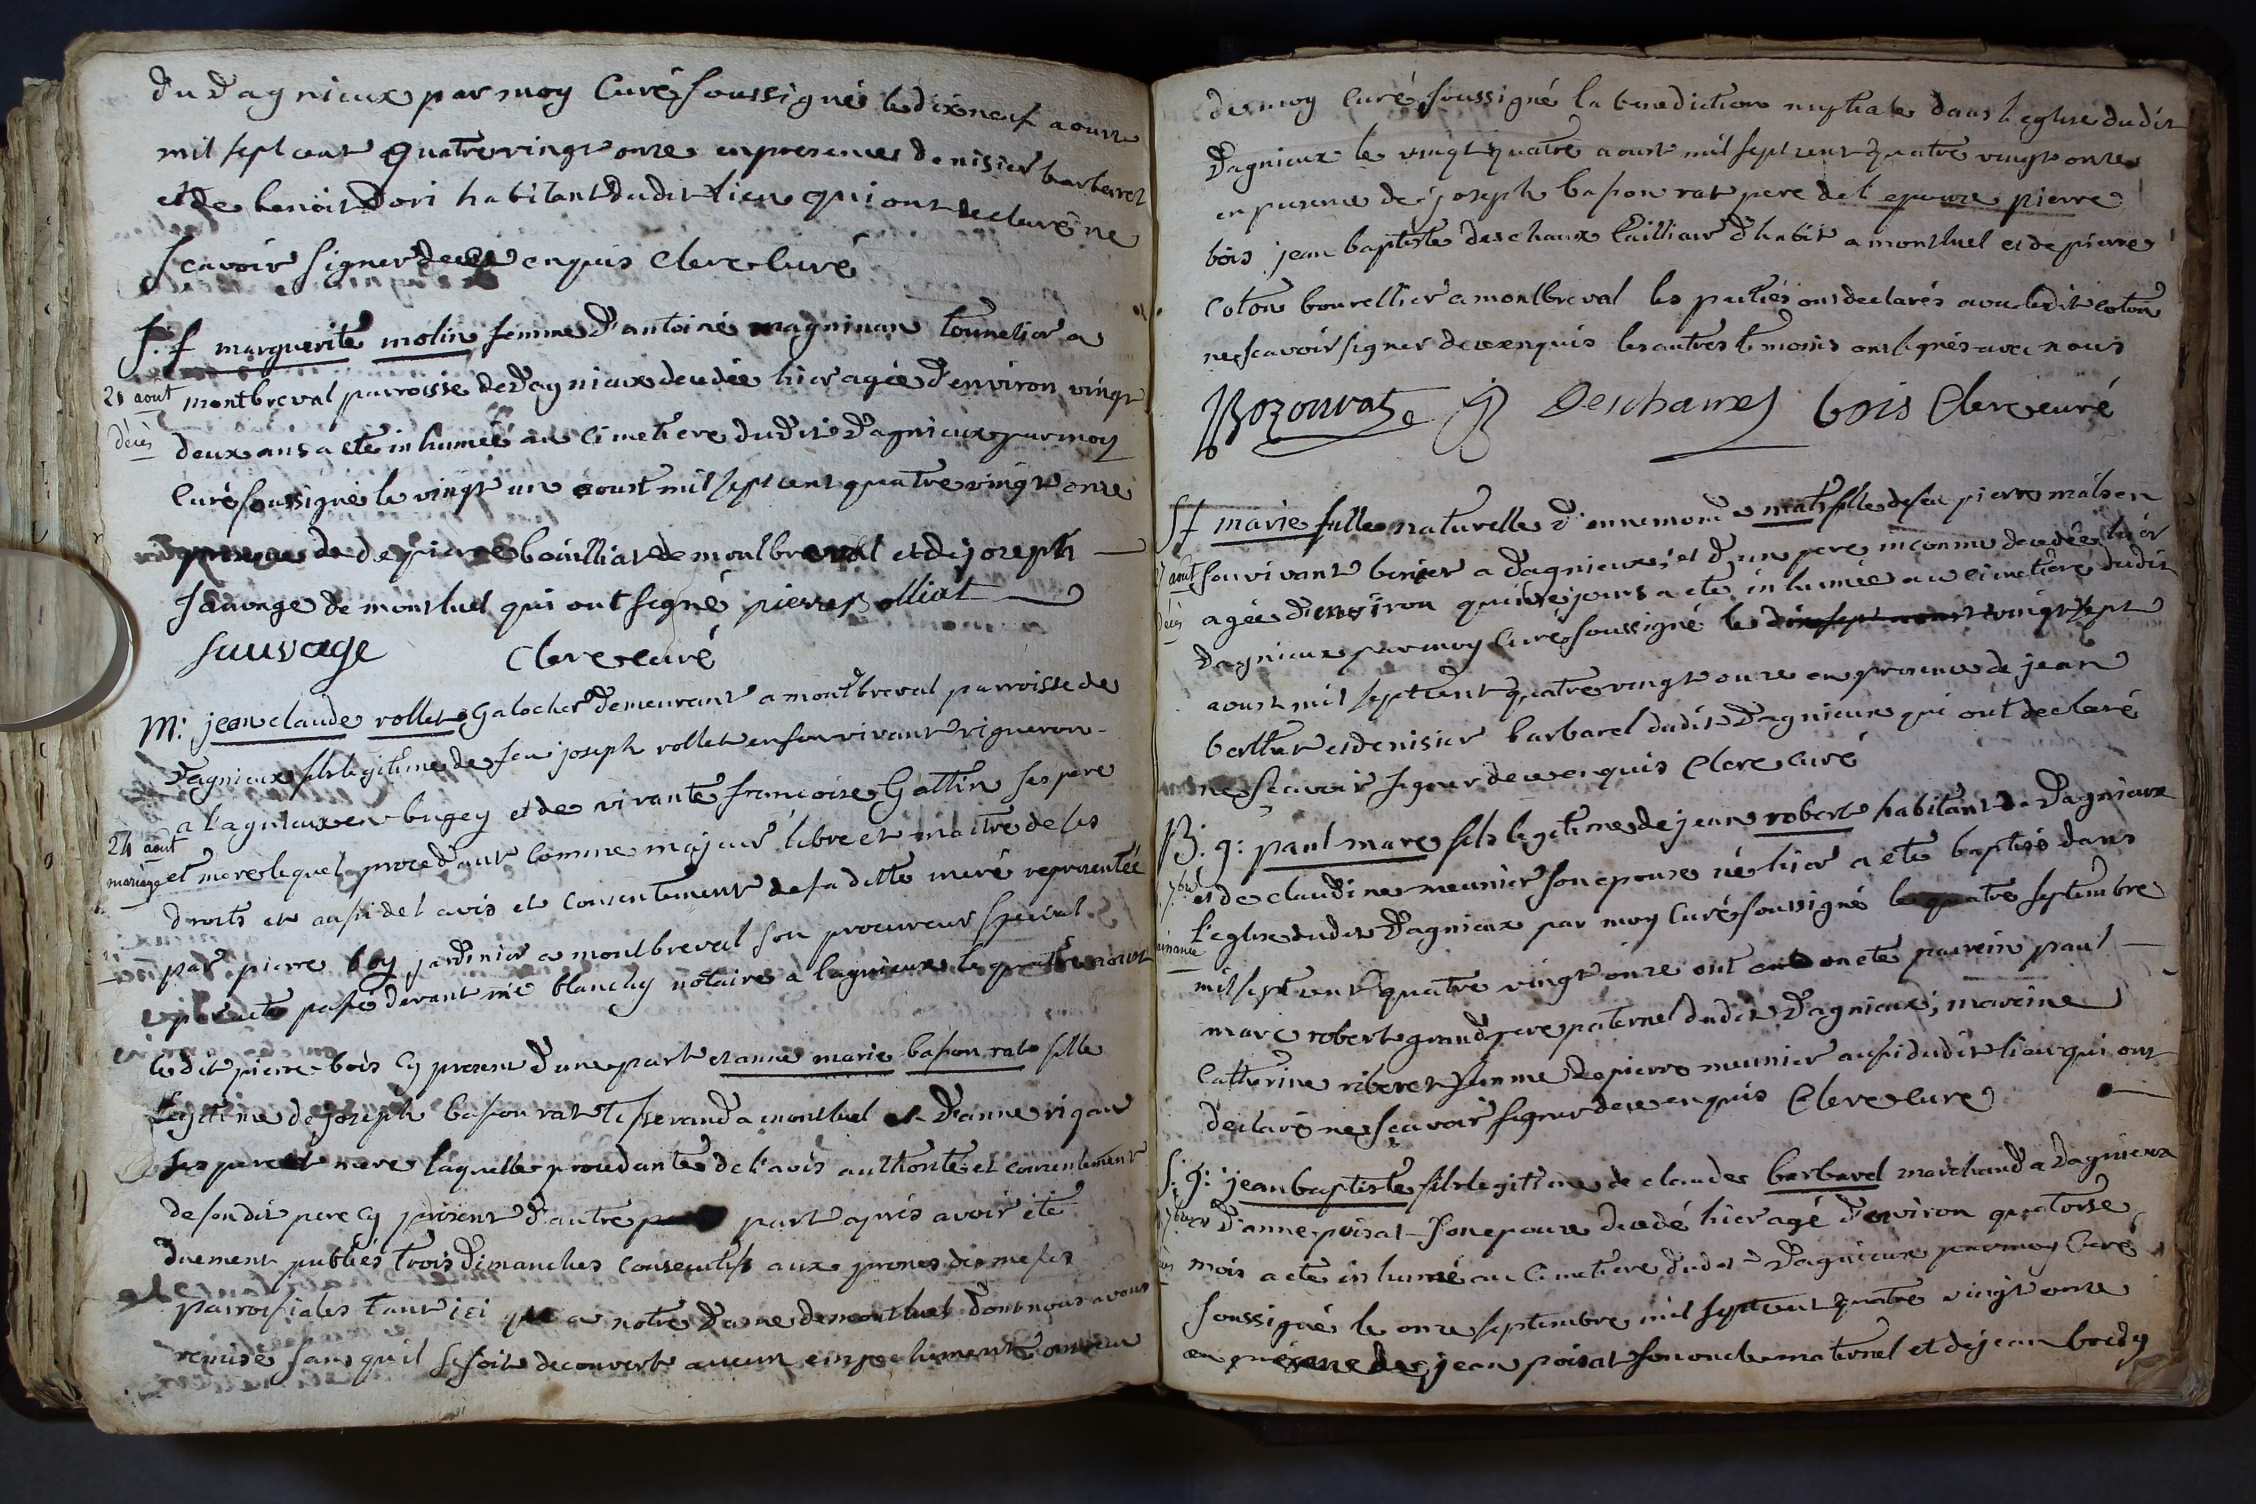 du Dagnieux par moy Curé soussigné le dix neuf aoust
mil sept cent quatre vingt onze en presence de nisier barbaret
et de benoit Dori habitant dudit lieu qui ont declaré ne
scavoir signer de ce enquis Clerc Curé
S. f marguerite molin femme d'antoine magninan tonnelier a
21 aout montbreval parroisse de Dagnieux decedée hier agée d'environ vingt
décès deux ans a eté inhumée au Cimetiere dudit Dagnieux par moy
Curé soussigné le vingt un aoust mil sept cent quatre vingt onze
presence de de pierre bouilliat de montbreval et de joseph
sauvage de montluel qui ont signé pierre Bolliat
sauvage Clerc curé
M: jean claude rollet Galocher demeurant a montbreval parroisse de
Dagnieux fils legitime de feu joseph rollet en son vivant vigneron
a Lagnieux en bugey et de vivante francoise Gottin ses pere
24 aout mariage et mere lequel procedant comme majeur libre et maitre de ses
droits et aussi de l avis et consentement de sa ditte mere representée
par pierre boy jardinier a montbreval son procureur special
par acte passé devant me blanchy notaire a lagnieux le quatre aoust
le dit pierre bois cy present d'une part et anne marie bason rat fille
legitime de joseph bason rat tisserand a montluel et d'anne rigau
ses pere et mere laquelle procedante de l'avis authorité et consentement
de son dit pere cy present d'autre part après avoir eté
duement publiés trois dimanches consecutifs aux prones des messes
parroissiales tant ici que a notre Dame de montluel dont nous avons
remise sans qu il se soit decouvert aucun empechement ont recu
de moy Curé soussigné la benediction nuptiale dans l eglise dudit
Dagnieux le vingt quatre aoust mil sept cent quatre vingt onze
en presence de joseph bason rat pere de l epouse pierre
bois jean baptiste deschaux tailliair d'habit a montluel et de pierre
coton bourellier a montbreval les parties ont declarés avec ledit coton
ne scavoir signer de ce enquis les autres temoins ont signés avec nous
Bozonrat JB Deschaux bois Clerc curé
S f marie fille naturelle d'ennemonde matis fille de feu pierre matis en
27 aout son vivant berger a Dagnieux, et d'un pere inconnu decedée hier
décès agée d'environ quinze jours a eté inhumée au cimetiere dudit
Dagnieux par moy Curé soussigné le vingt sept
aoust mil sept cent quatre vingt onze en presence de jean
berthet et de nisier barbarel dudit Dagnieux qui ont declaré
ne scavoir signer de ce enquis Clerc curé
B. g: paul marc fils legitime de jean robert habitant de Dagnieux
7bre et de claudine meunier son epouse né hier a eté baptisé dans
l'eglise dudit Dagnieux par moy Curé soussigné le quatre septembre
mil sept cent quatre vingt onze ont eté parrein paul
marc robert grand pere paternel dudit Dagnieux, mareine
Catherine riberet femme de pierre meunier aussi dudit lieu qui ont
declaré ne scavoir signer de ce enquis Clerc curé
S. g: jean baptiste fils legitime de claude barbarel marchand a Dagnieux
7bre et d'anne poisat son epouse decedé hier agé d'environ quatorse
mois a eté inhumé au Cimetiere dudit Dagnieux par moy Curé
soussigné le onze septembre mil sept cent quatre vingt onze
en presence de jean poisat son oncle maternel et de jean